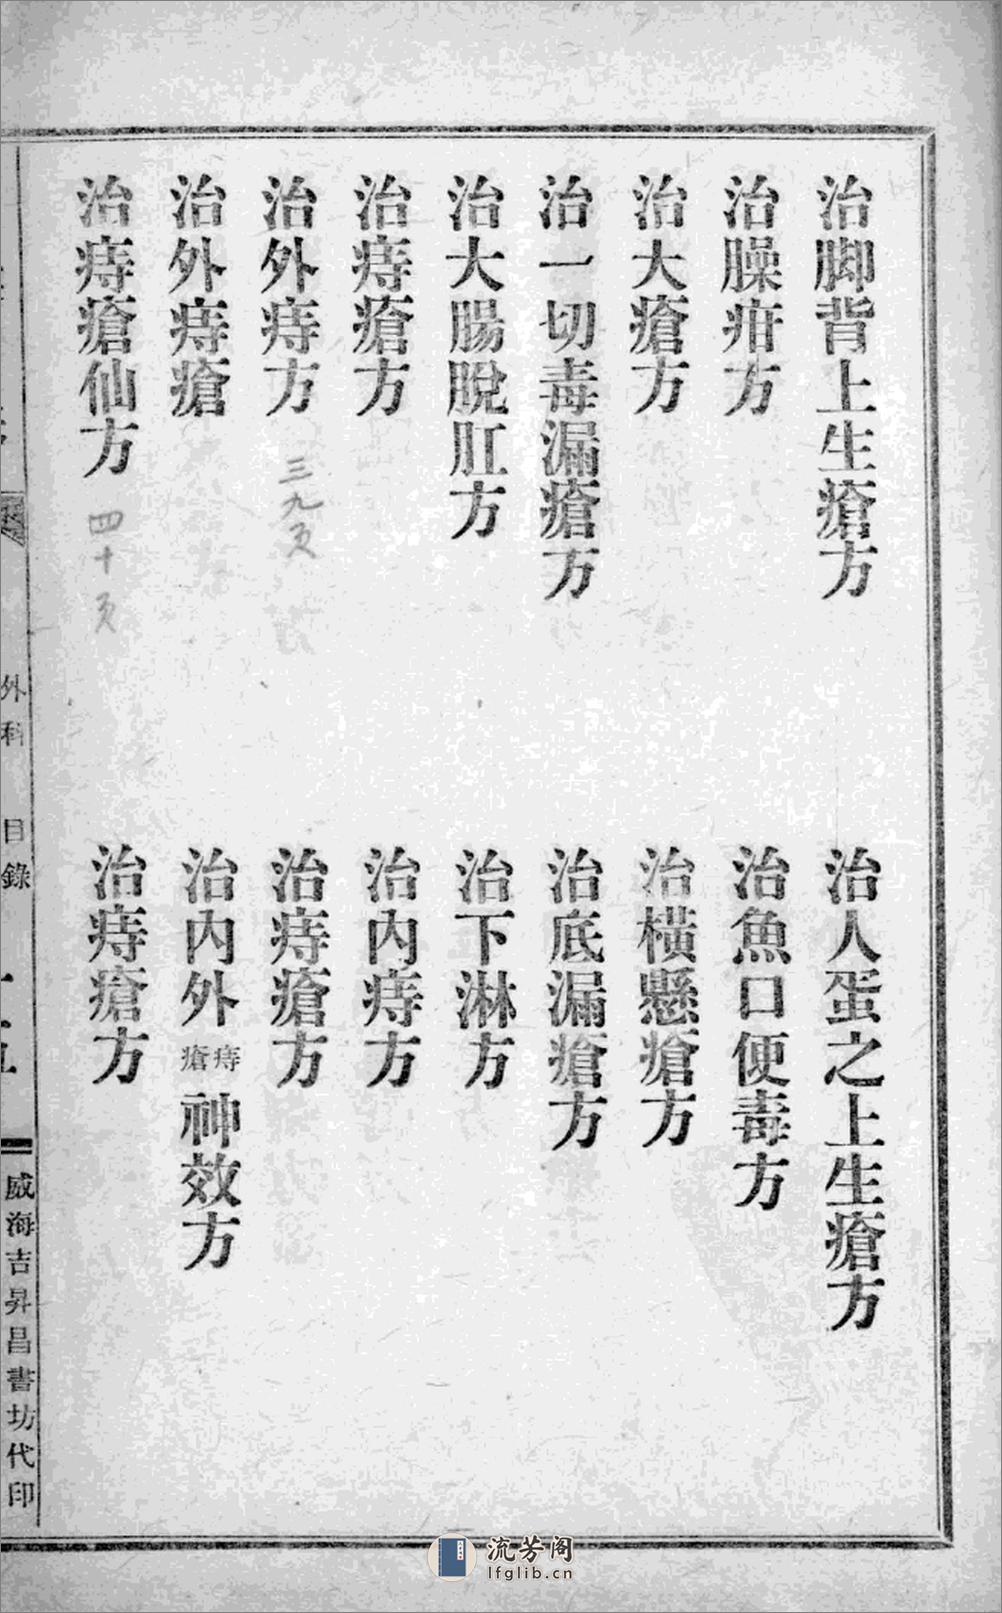 治脚背上生瘡方
治人蛋之上生瘡方
治臊疳方
治魚口便毒方
治大瘡方
治橫懸瘡方
治一切毒漏瘡方
治底漏瘡方
治大腸脫肛方
治下淋方
治痔瘡方
治內痔方
治外痔方 三九页
治痔瘡方
治外痔瘡
治內外痔瘡神效方
治痔瘡仙方 四十页
治痔瘡方
外科 目錄
威海吉昇昌書坊代印
流芳阁
lfglib.cn